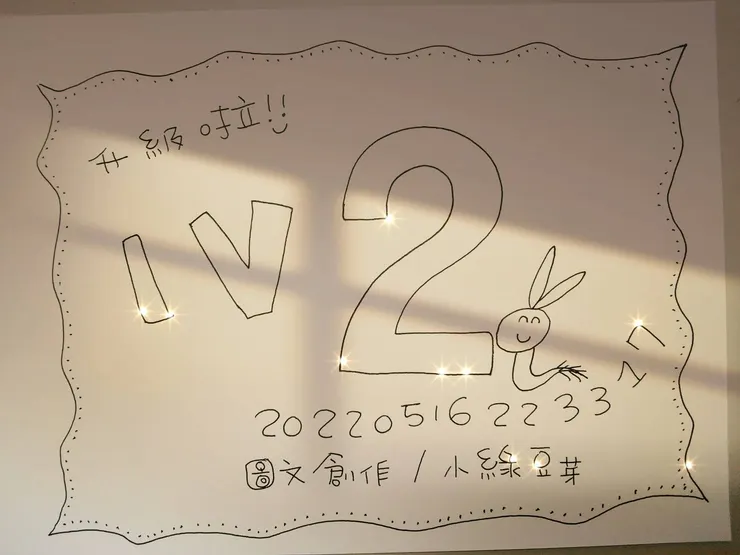 升級啦!!
IV2
20220516223327
圖文創作/小綠豆芽